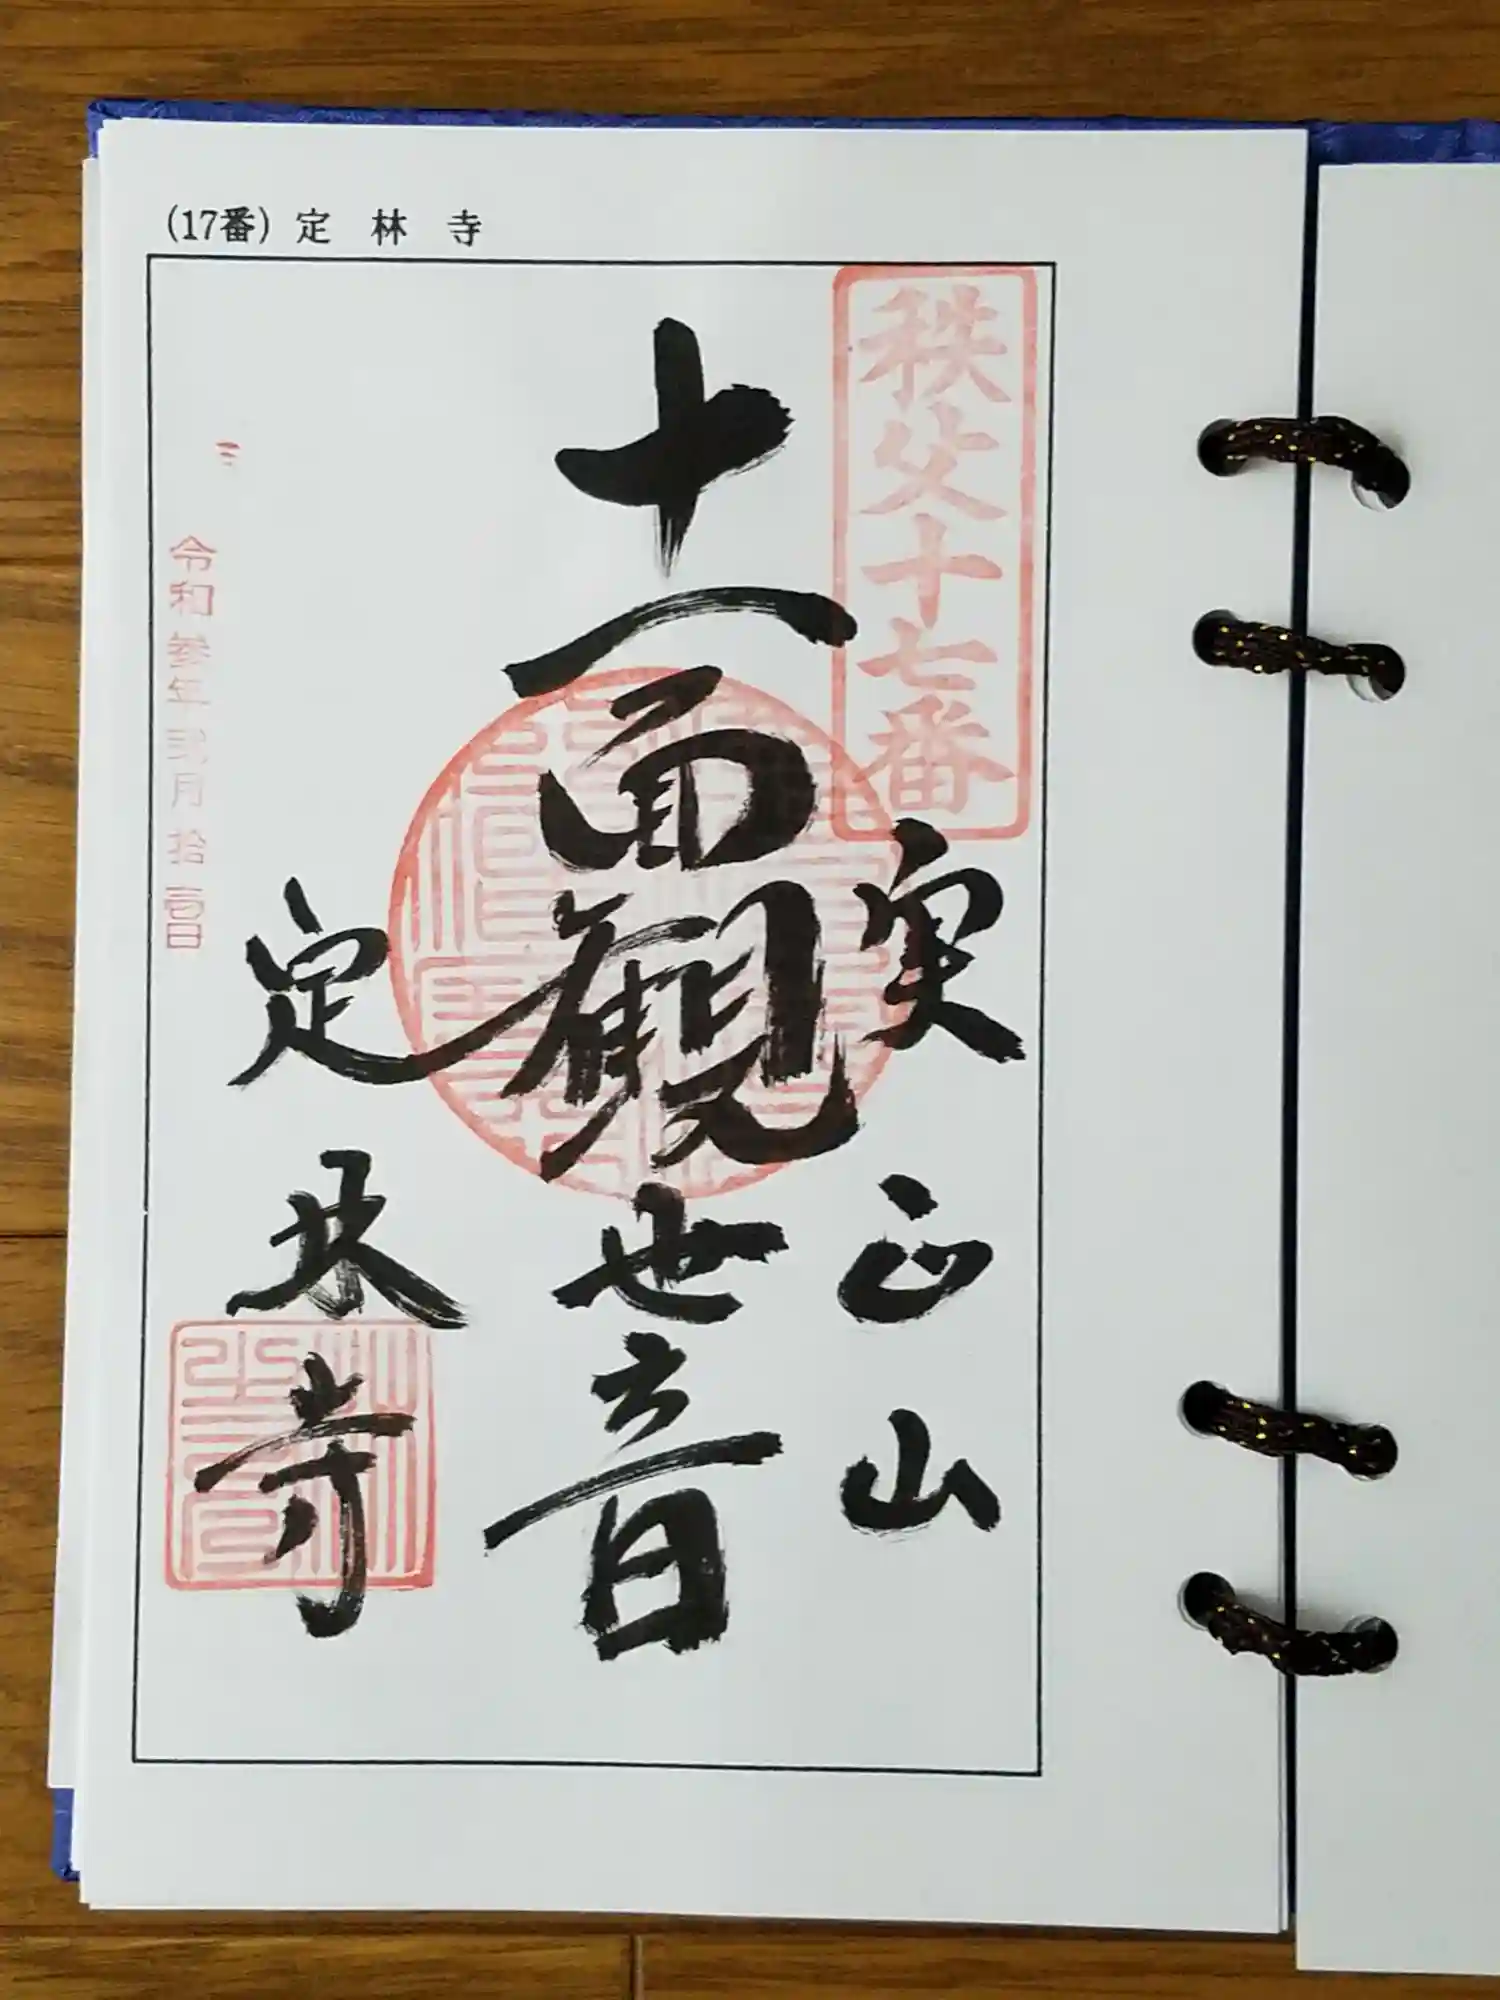 (17番) 定 林 寺
秩父十七番
実正山
十一面観世音
定林寺
令和参年弐月拾壹日